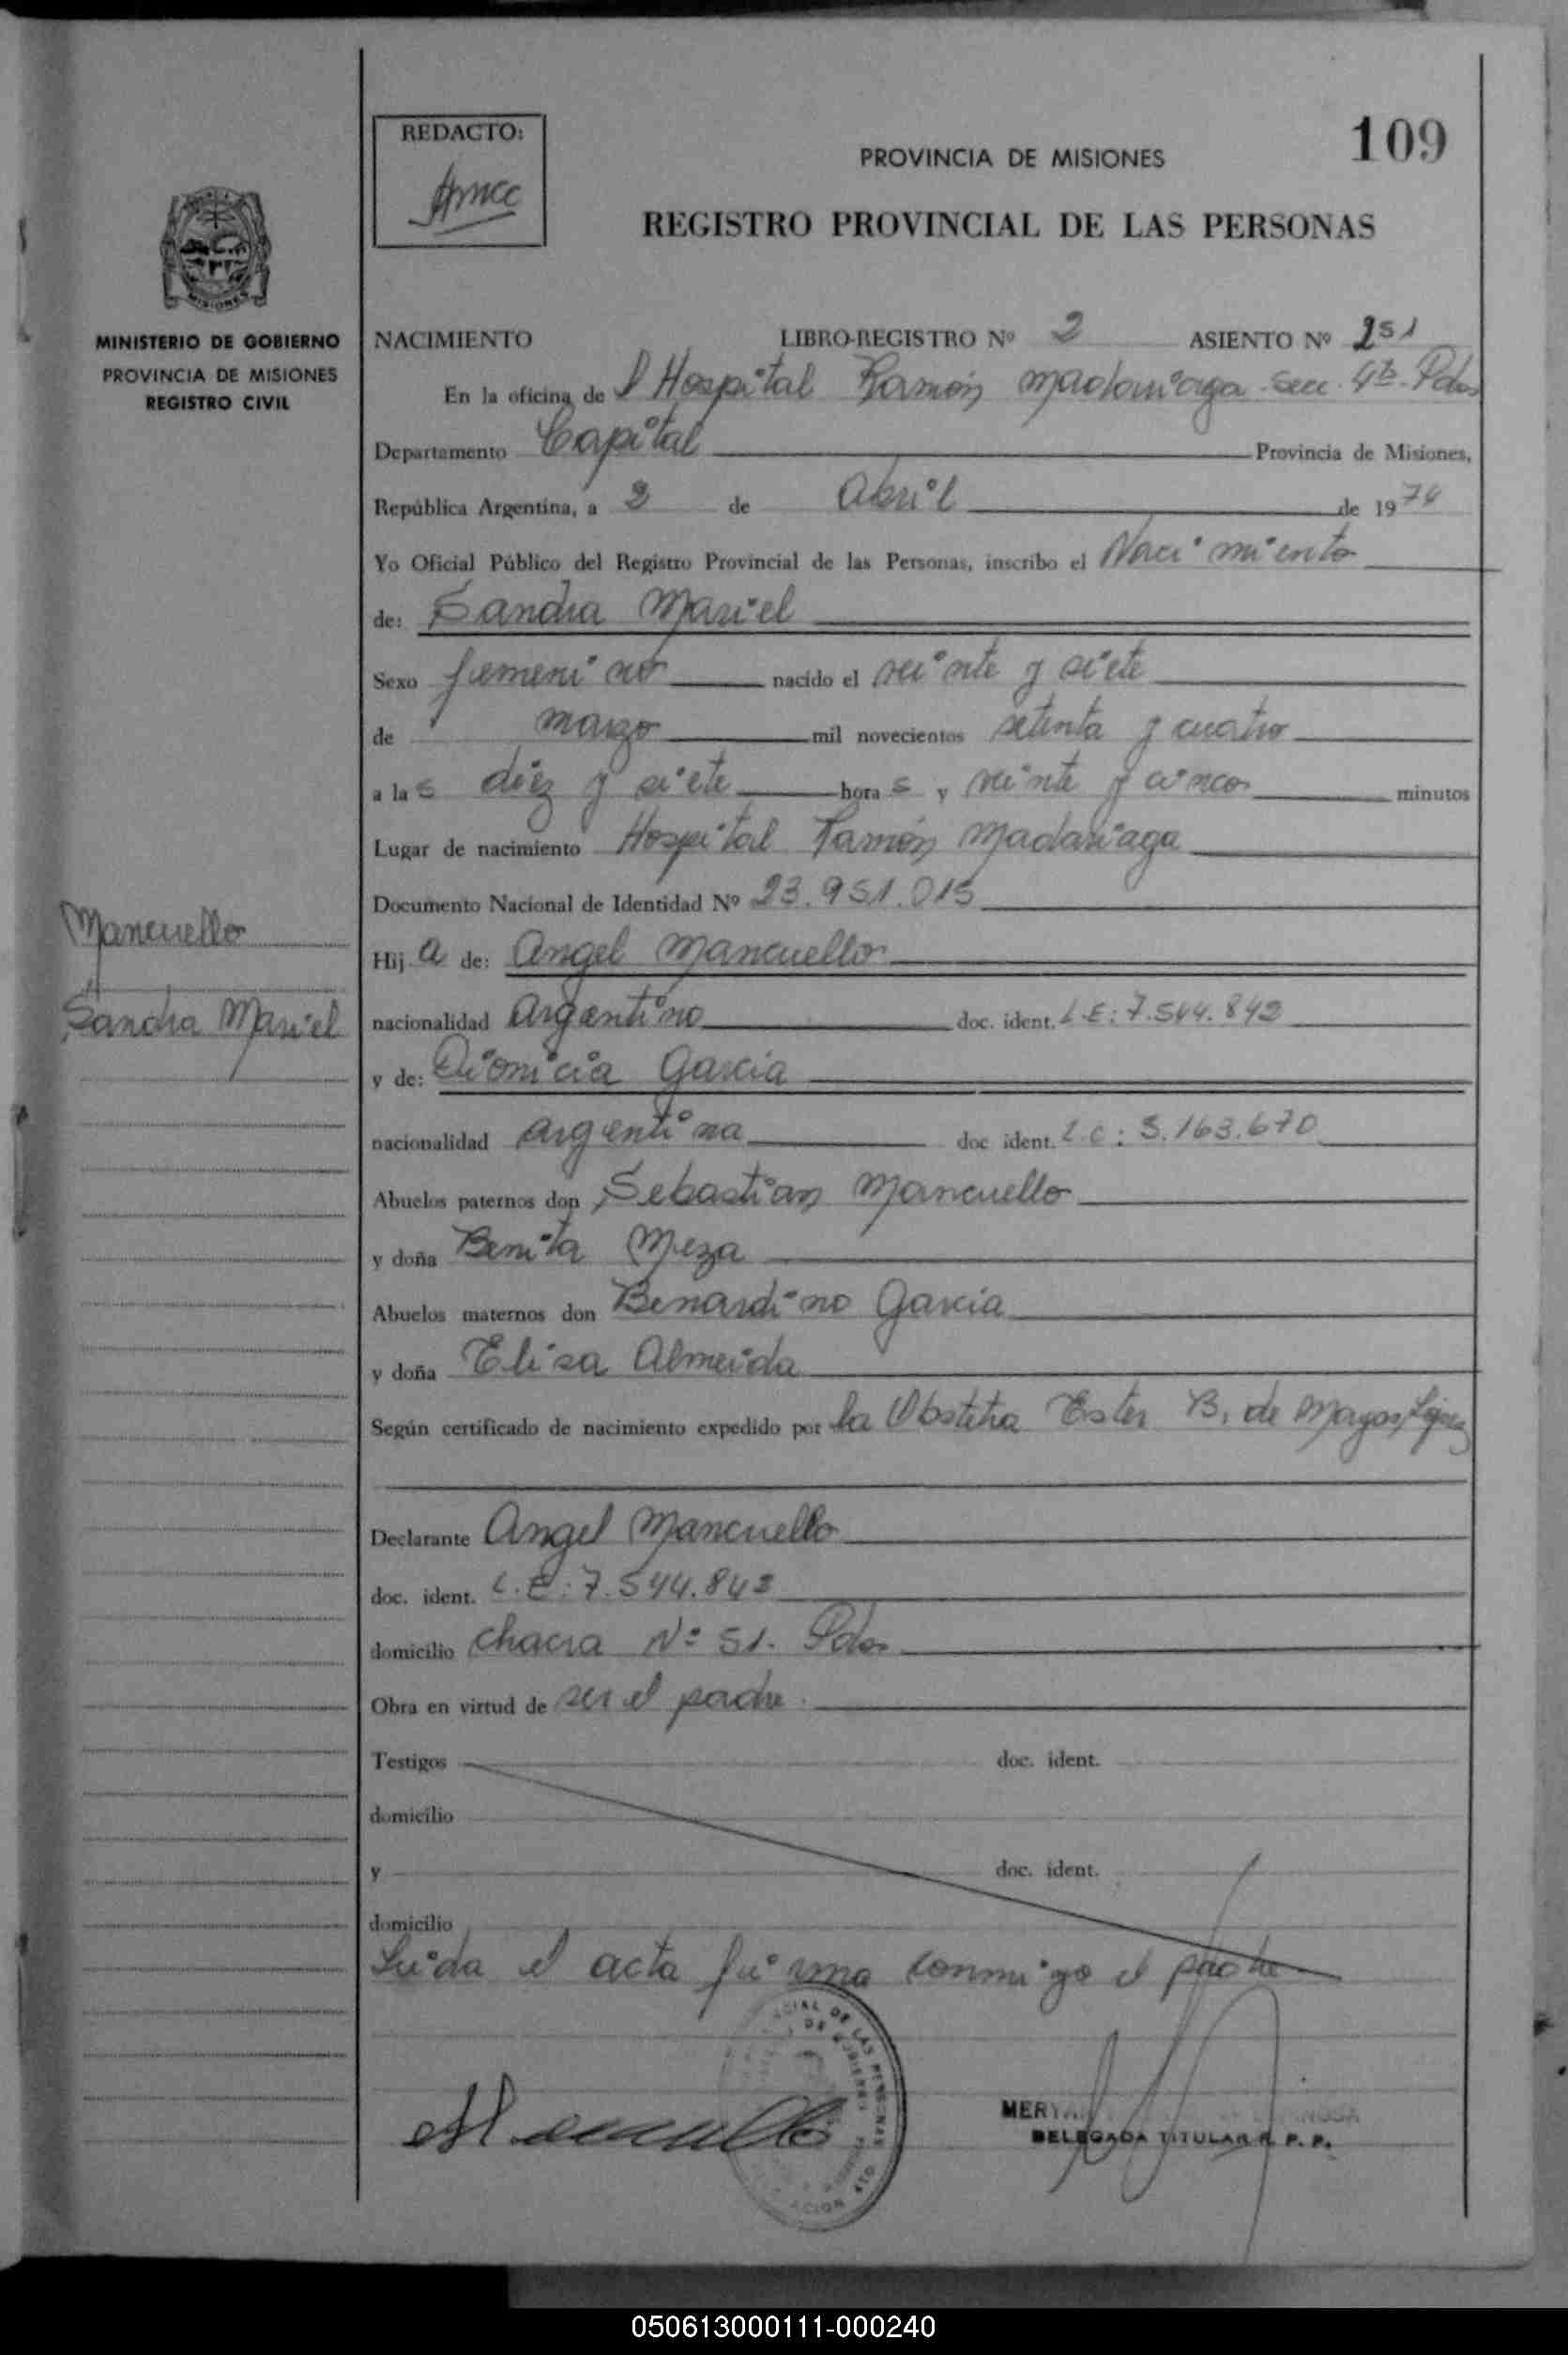 109
REDACTO:
PROVINCIA DE MISIONES
REGISTRO PROVINCIAL DE LAS PERSONAS
MISIONES
MINISTERIO DE GOBIERNO
PROVINCIA DE MISIONES
REGISTRO CIVIL
NACIMIENTO LIBRO-REGISTRO Nº 2 ASIENTO Nº 251
En la oficina de l Hospital Ramón Madariaga Sec. 4ta. Pdas
Departamento Capital Provincia de Misiones,
República Argentina, a 2 de Abril de 1974
Yo Oficial Público del Registro Provincial de las Personas, inscribo el Nacimiento
de: Sandra Mariel
Sexo femenino nacido el veinte y siete
de marzo mil novecientos setenta y cuatro
a las diez y siete horas y veinte y cinco minutos
Lugar de nacimiento Hospital Ramón Madariaga
Documento Nacional de Identidad Nº 23.951.015
Mancuello
Sandra Mariel
Hija de: Angel Mancuello
nacionalidad Argentino doc. ident. L.E: 7.544.842
y de: Dionicia Garcia
nacionalidad Argentina doc ident. L.C: 5.163.670
Abuelos paternos don Sebastian Mancuello
y doña Benita Meza
Abuelos maternos don Benardino Garcia
y doña Elisa Almeida
Según certificado de nacimiento expedido por la Obstetra Ester B. de
Declarante Angel Mancuello
doc. ident. L.E: 7.544.842
domicilio Chacra Nº 51. Pdas
Obra en virtud de ser el padre.
Testigos doc. ident.
domicilio
y doc. ident.
domicilio
Leida el acta firma conmigo el padre
Mancuello
MERY
DELEGADA TITULAR R. P. P.
050613000111-000240